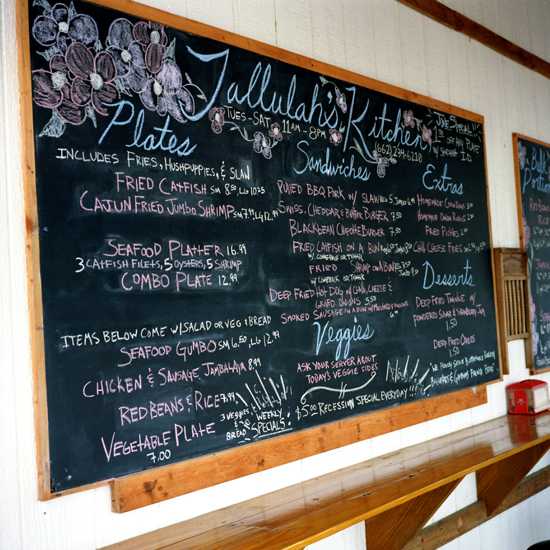 Tallulah's Kitchen
TUES-SAT 11AM-8PM
(662)234-6210
JUNE SPECIAL!
$1 OFF ANY PLATE
Plates
INCLUDES FRIES, HUSHPUPPIES, & SLAW
FRIED CATFISH SM 8.50 LG 10.25
CAJUN FRIED JUMBO SHRIMP SM 7.99 LG 12.99
SEAFOOD PLATTER 16.99
3 CATFISH FILETS, 5 OYSTERS, 5 SHRIMP
COMBO PLATE 12.99
ITEMS BELOW COME W/SALAD OR VEG & BREAD
SEAFOOD GUMBO SM 6.50 LG 8.99
CHICKEN & SAUSAGE JAMBALAYA 8.99
RED BEANS & RICE 8.99
VEGETABLE PLATE
7.00
3 VEGGIES & BREAD
WEEKLY SPECIALS!
Sandwiches
PULLED BBQ PORK W/ SLAW
SWISS, CHEDDAR & BUTTER BURGER
BLACKBEAN CHIPOTLE BURGER
FRIED CATFISH ON A BUN
FRIED SHRIMP ON A BUN
DEEP FRIED HOT DOG W/ CHILI, CHEESE &
FRIED ONIONS 5.50
SMOKED SAUSAGE ON A BUN
Veggies
ASK YOUR SERVER ABOUT
TODAY'S VEGGIE SIDES
$5.00 RECESSION SPECIAL EVERYDAY!!!
Extras
FRIED PICKLES
CHILI CHEESE FRIES
Desserts
DEEP FRIED TWINKIE W/
POWDERED SUGAR & STRAWBERRY
1.50
DEEP FRIED OREOS
1.50